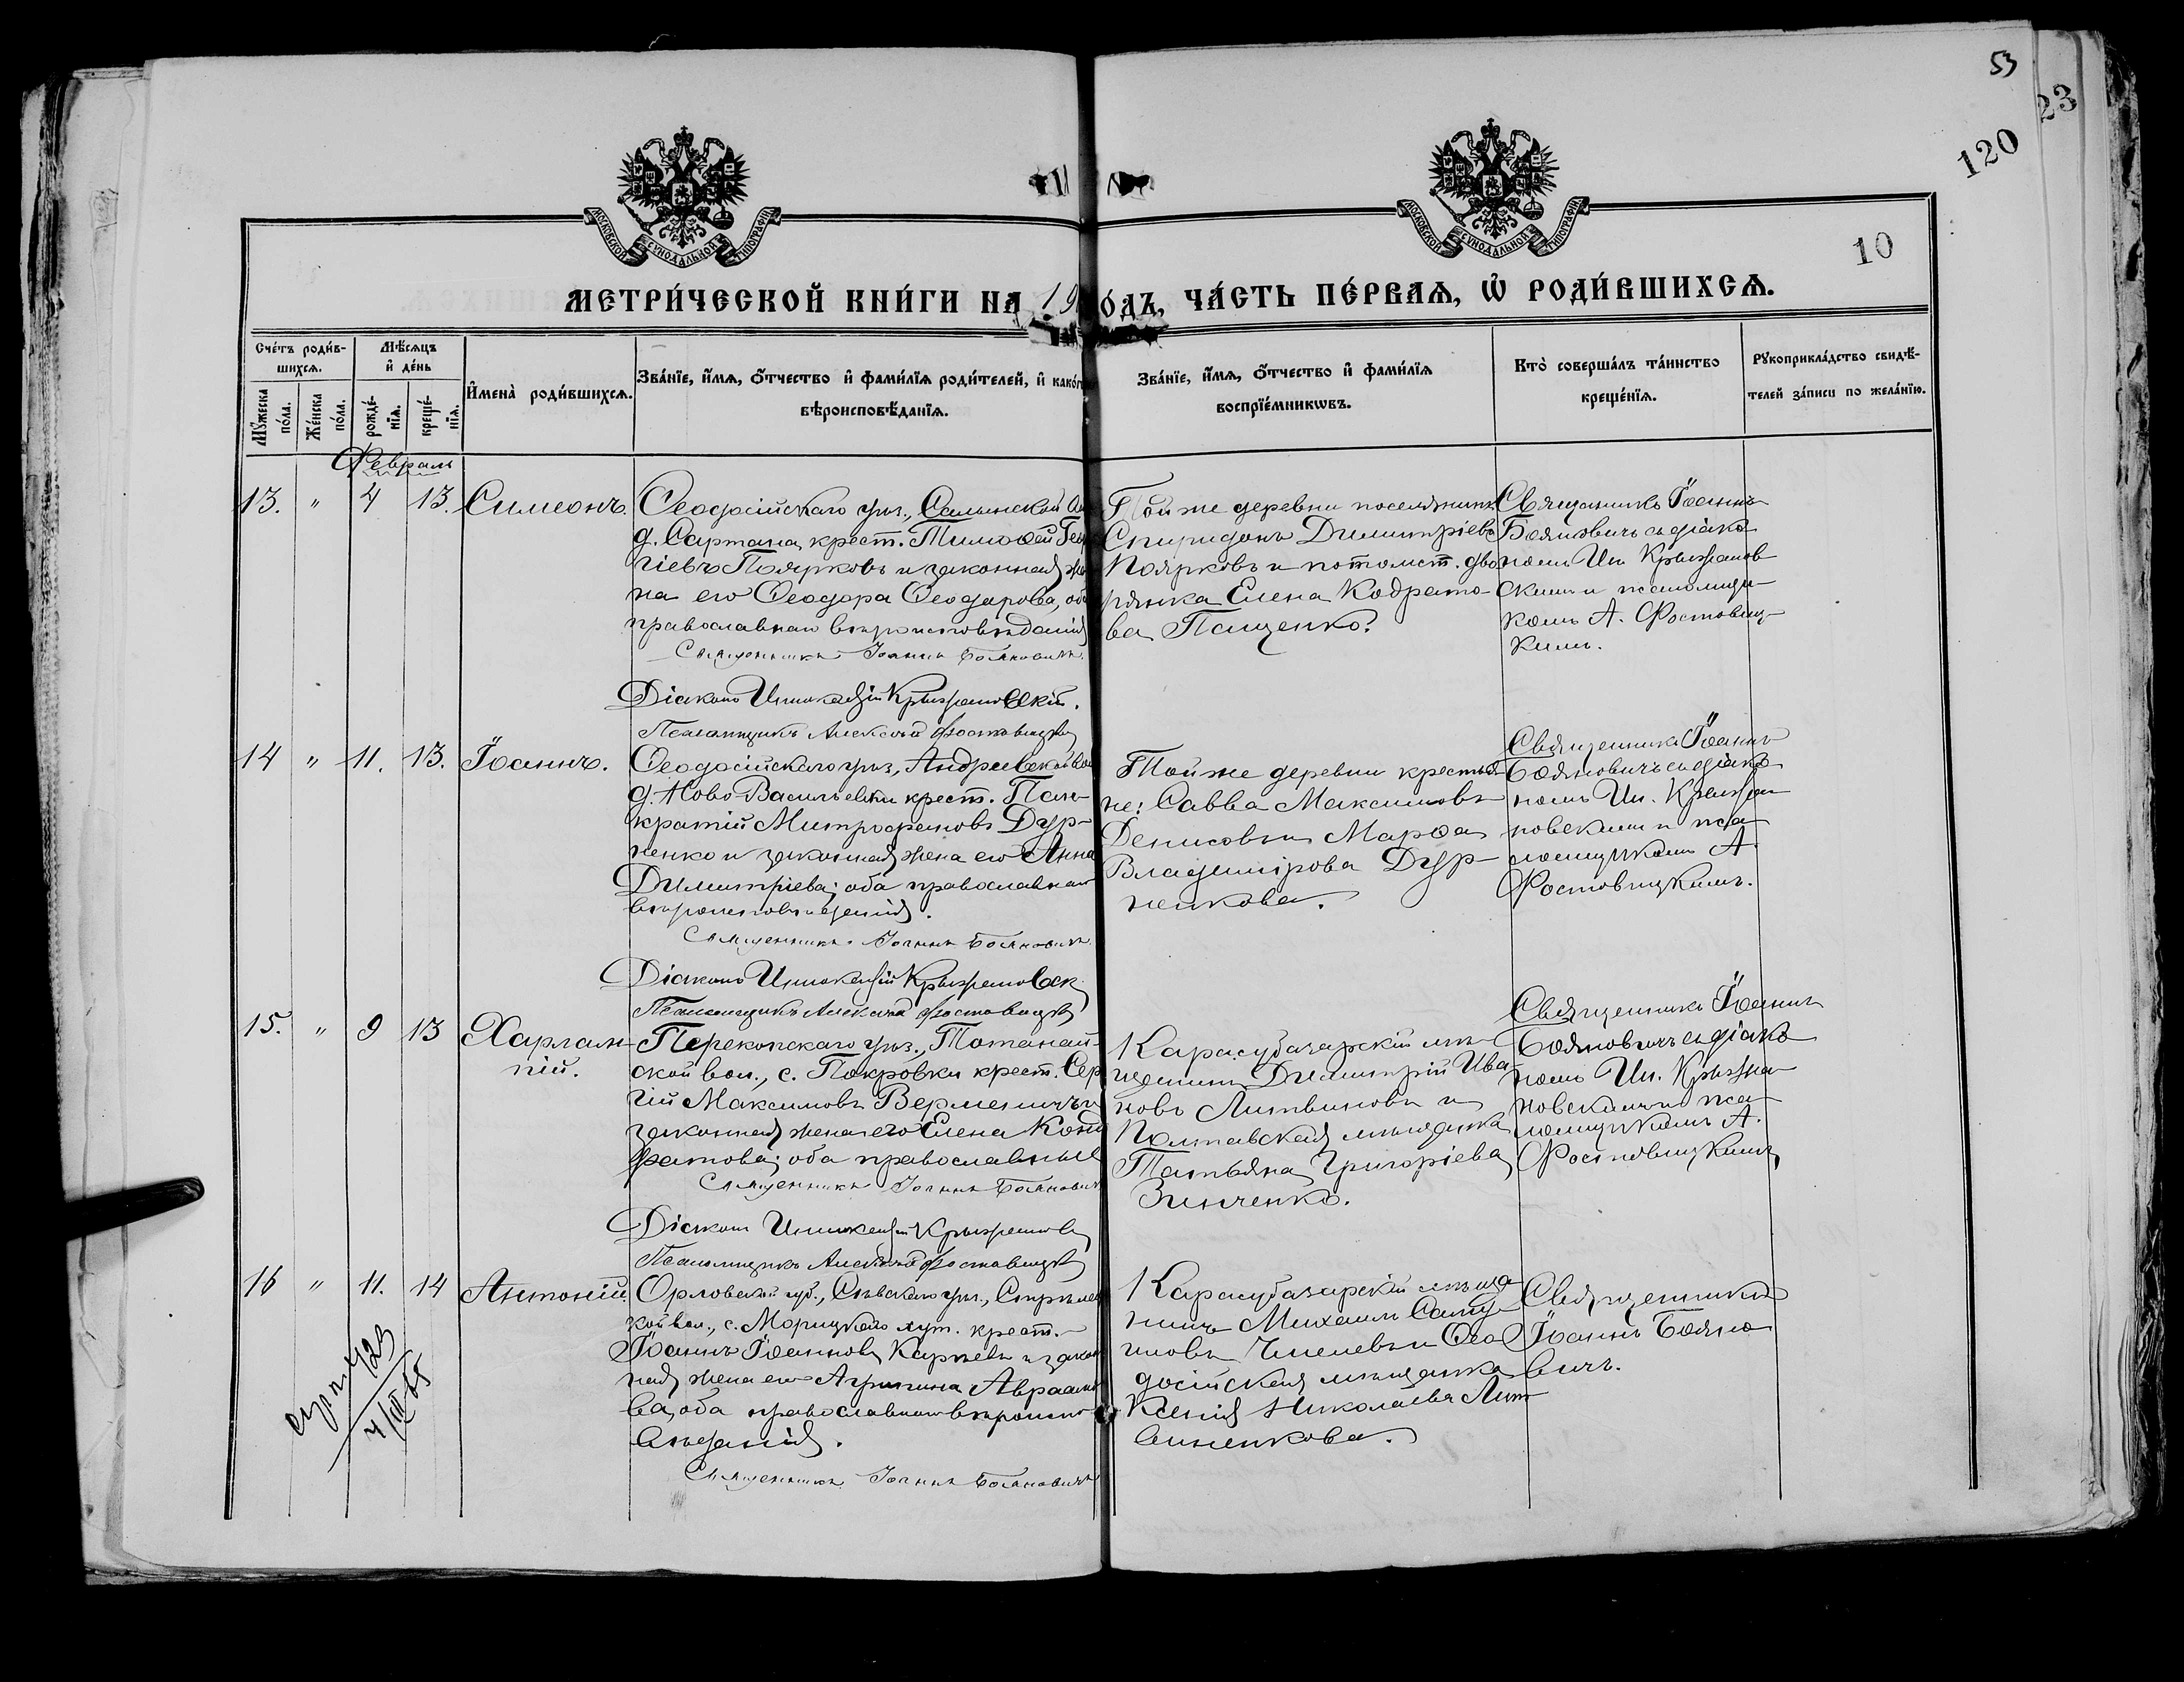 53
23
120
10
МОСКОВСКОЙ СѴНОДАЛЬНОЙ ТИПОГРАФІИ
МОСКОВСКОЙ СѴНОДАЛЬНОЙ ТИПОГРАФІИ
МЕТРИ́ЧЕСКОЙ КНИ́ГИ НА 19 ОДЪ, ЧА́СТЬ ПЕ́РВАѦ, Ѽ РОДИ́ВШИХСѦ.
Сче́тъ роди́в-
шихсѧ.
Мѣ́сѧцъ
и҆ де́нь
Мꙋ́жеска
по́ла.
Же́нска
по́ла.
рожде́-
нїѧ.
креще́-
нїѧ.
И҆мена̀ роди́вшихсѧ.
Зва́нїе, и҆́мѧ, ѻ҆́тчество и҆ фами́лїѧ роди́телей, и҆ како́г
вѣроисповѣ́данїѧ.
Зва́нїе, и҆́мѧ, ѻ҆́тчество и҆ фами́лїѧ
воспрїе́мникѡвъ.
Кто̀ соверша́лъ та́инство
креще́нїѧ.
Рꙋкоприкла́дство свидѣ́-
телей за́писи по жела́нїю.
Февраль
13. " 4 13. Симеонъ.
Ѳеодосійскаго уѣз., Салынской
д. Сартана, крест. Тимоѳей Геор
гіевъ Поярковъ и законная же
на его Ѳеодора Ѳеодорова, оба
православнаго вѣроисповѣданія
Священникъ Іоаннъ Бояновичъ.
Діаконъ Иннокентій Крыжановскій.
Псаломщикъ Алексѣй Фостовицкій
Той же деревни поселянинъ
Спиридонъ Димитріевъ
Поярковъ и потомст. дво
рянка Елена Кодрато-
ва Пащенко.
Священникъ Іоаннъ
Бояновичъ съ діако
номъ Ин. Крыжанов
скимъ и псаломщи-
комъ А. Фостовиц-
кимъ.
14 " 11. 13. Іоаннъ.
Ѳеодосійскаго уѣз., Андреевской вол
д. Ново-Васильевки крест. Пан-
кратій Митрофановъ Дур-
ненко и законная жена его Анна
Димитріева; оба православнаго
вѣроисповѣданія.
Священникъ Іоаннъ Бояновичъ.
Діаконъ Иннокентій Крыжановск.
Псаломщикъ Алексѣй Фостовицкій
Той же деревни крестья
не: Савва Максимовъ
Денисовъ и Марѳа
Владимірова Дур-
ненкова.
Священникъ Іоаннъ
Бояновичъ съ діако
номъ Ин. Крыжа
новскимъ и пса-
ломщикомъ А.
Фостовицкимъ.
15. " 9 13 Харлам-
пій.
Перекопскаго уѣз., Тотанай-
ской вол., с. Покровки крест. Сер
гій Максимовъ Верменичъ и
законная жена его Елена Конд
ратова; оба православные
Священникъ Іоаннъ Бояновичъ
Діаконъ Иннокентій Крыжановск
Псаломщикъ Алексѣй Фостовицкій
Карасубазарскій мѣ-
щанинъ Димитрій Ива
новъ Литвиновъ и
Полтавская мѣщанка
Татьяна Григоріева
Зинченко.
Священникъ Іоаннъ
Бояновичъ съ діако
номъ Ин. Крыжа-
новскимъ и пса-
ломщикомъ А.
Фостовицкимъ
16 " 11. 14 Антоній.
Орловской губ., Сѣвскаго уѣз., Стрѣлец
кой вол., с. Морицкаго хут. крест.
Іоаннъ Іоанновъ Карпевъ и закон
ная жена его Агрипина Авраамо
ва, оба православнаго вѣроиспо
вѣданія.
Священникъ Іоаннъ Бояновичъ
Карасубазарскій мѣща
нинъ Михаилъ Саму
иловъ Чмелевъ и Ѳео
досійская мѣщанка
Ксенія Николаева Лит
виненкова.
Священникъ
Іоаннъ Бояно
вичъ.